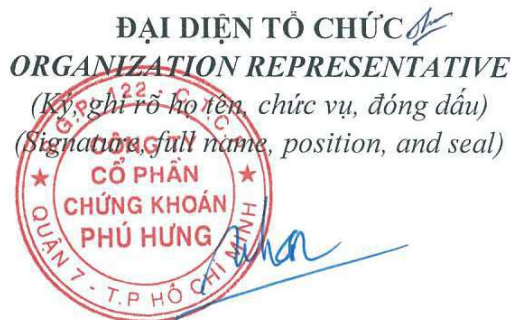 ĐẠI DIỆN TỔ CHỨC
ORGANIZATION REPRESENTATIVE
(Ký, ghi rõ họ tên, chức vụ, đóng dấu)
(Signature, full name, position, and seal)
CÔNG TY
CỔ PHẦN
CHỨNG KHOÁN
PHÚ HƯNG
QUẬN 7 - T.P HỒ CHÍ MINH